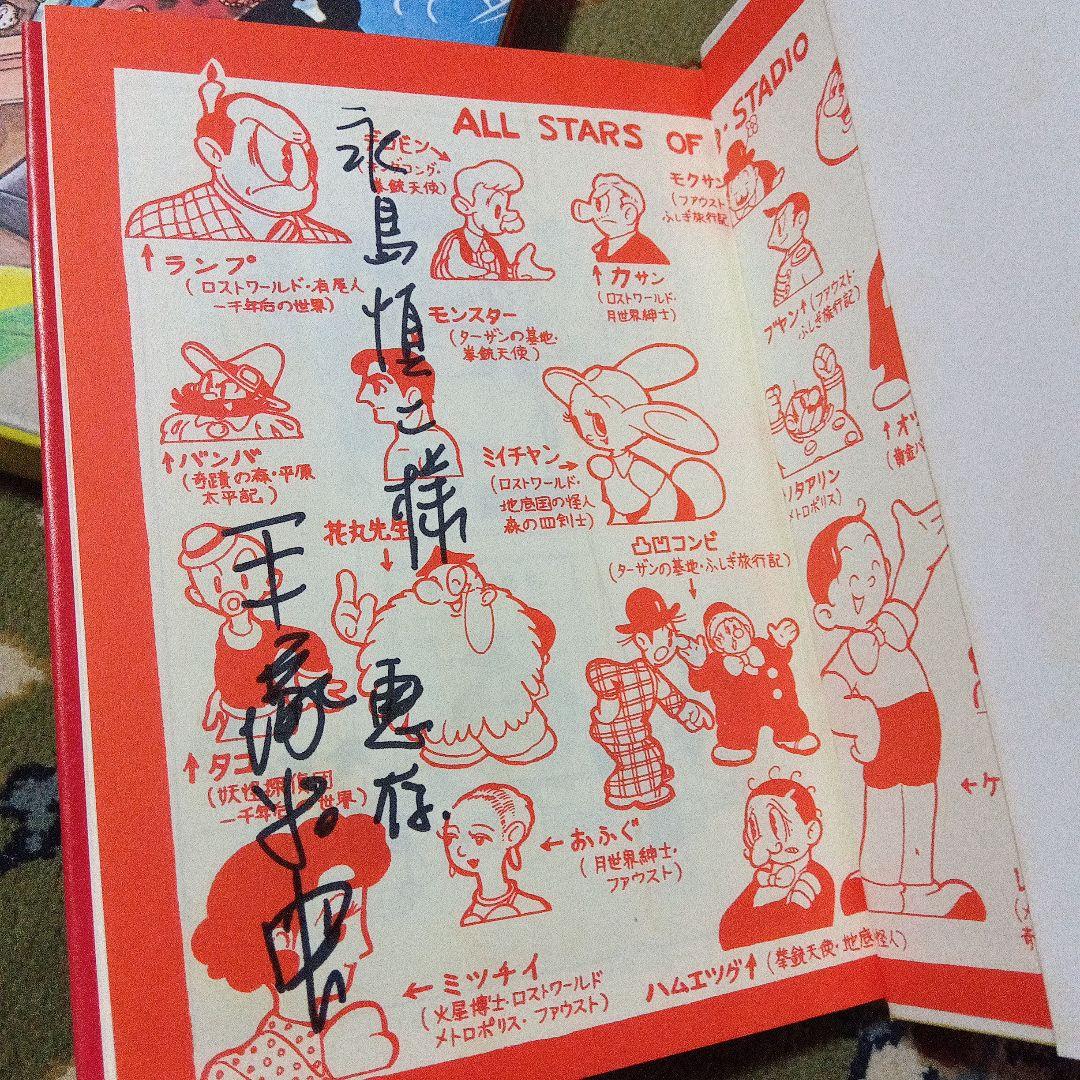 ALL STARS OF
STADIO
永島慎二様
恵存.
↑ランプ
(ロストワールド・有尾人
一千年后の世界)
拳銃天使)
モンスター
(ターザンの基地・
拳銃天使)
↑カサン
(ロストワールド・
月世界紳士)
モクサン
(ファウスト
ふしぎ旅行記
ブヤン↑(ファウスト・
ふしぎ旅行記)
↑バンバ
(奇蹟の森・平原
太平記)
ミイチャン→
(ロストワールド・
地底国の怪人
森の四剣士)
メトロポリス)
花丸先生
↓
凸凹コンビ
(ターザンの基地・ふしぎ旅行記)
↓
↑タコ
世界)
←おふぐ
(月世界紳士・
ファウスト)
←ミッチイ
(火星博士・ロストワールド
メトロポリス・ファウスト)
ハムエッグ↑(拳銃天使・地底怪人)